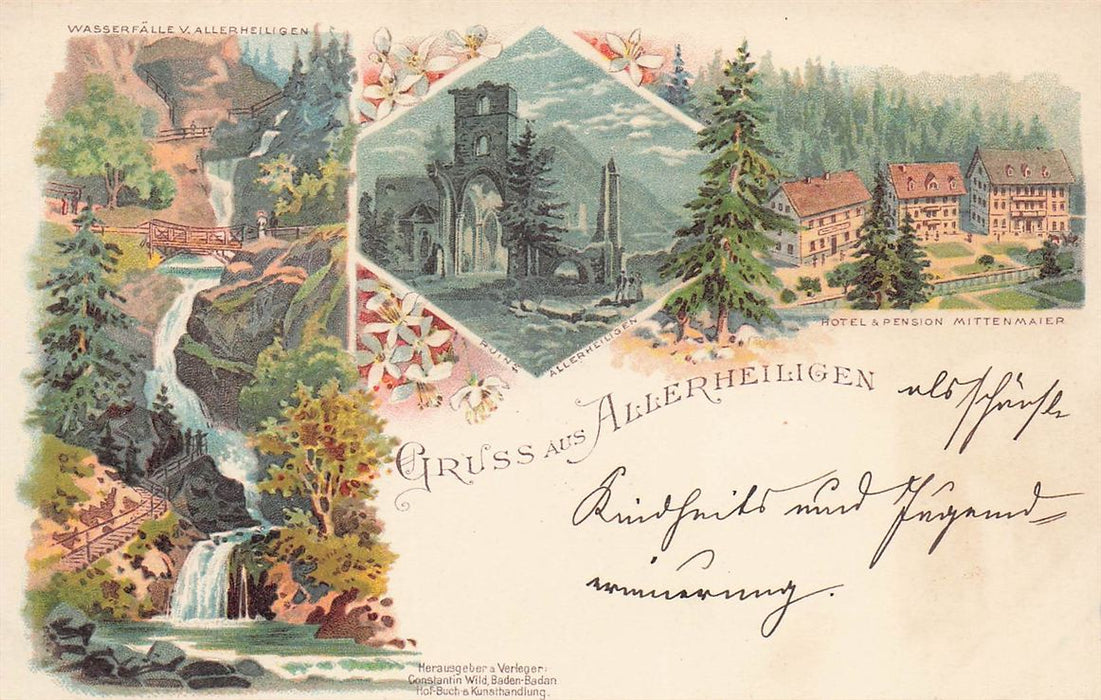 WASSERFÄLLE V. ALLERHEILIGEN
RUINE ALLERHEILIGEN
HOTEL & PENSION MITTENMAIER
GRUSS AUS ALLERHEILIGEN
als schönste
Kindheits und Jugend=
erinnerung.
Herausgeber u Verleger:
Constantin Wild, Baden-Baden
Hof-Buch- & Kunsthandlung.